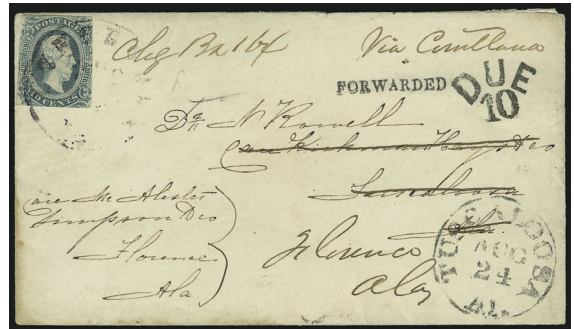 POSTAGE
TEN CENTS
Chg Bx 164
Via Courtland
FORWARDED
DUE
10
Dr. N Rowell
Care Kirkman Hays & Co
Tuscaloosa
Ala.
Florence
Ala
Care McAlester
Simpson & Co
Florence
Ala
TUSCALOOSA
AUG
24
AL.